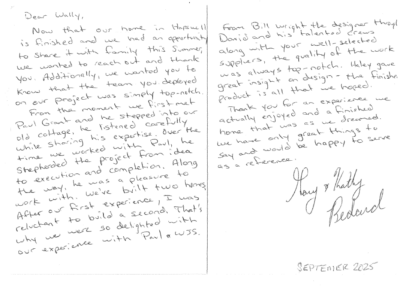 Dear Wally,
Now that our home in Harpswell
is finished and we had an opportunity
to share it with family this Summer,
we wanted to reach out and thank
you. Additionally, we wanted you to
know that the team you deployed
on our project was simply top-notch.
From the moment we first met
Paul Grant and he stepped into our
old cottage, he listened carefully
while sharing his expertise. Over the
time we worked with Paul, he
Shepherded the project from idea
to execution and completion. Along
the way, he was a pleasure to
work with. We've built two homes.
After our first experience, I was
reluctant to build a second. That's
why we were so delighted with
our experience with Paul & WJS.
From Bill Wright the designer through
David and his talented crews
along with your well-selected
suppliers, the quality of the work
was always top-notch. Haley gave
great insight on design - the finished
product is all that we hoped.
Thank you for an experience we
actually enjoyed and a finished
home that was as we dreamed.
We have only great things to
say and would be happy to serve
as a reference.
& Kathy
Bedard
SEPTEMBER 2025